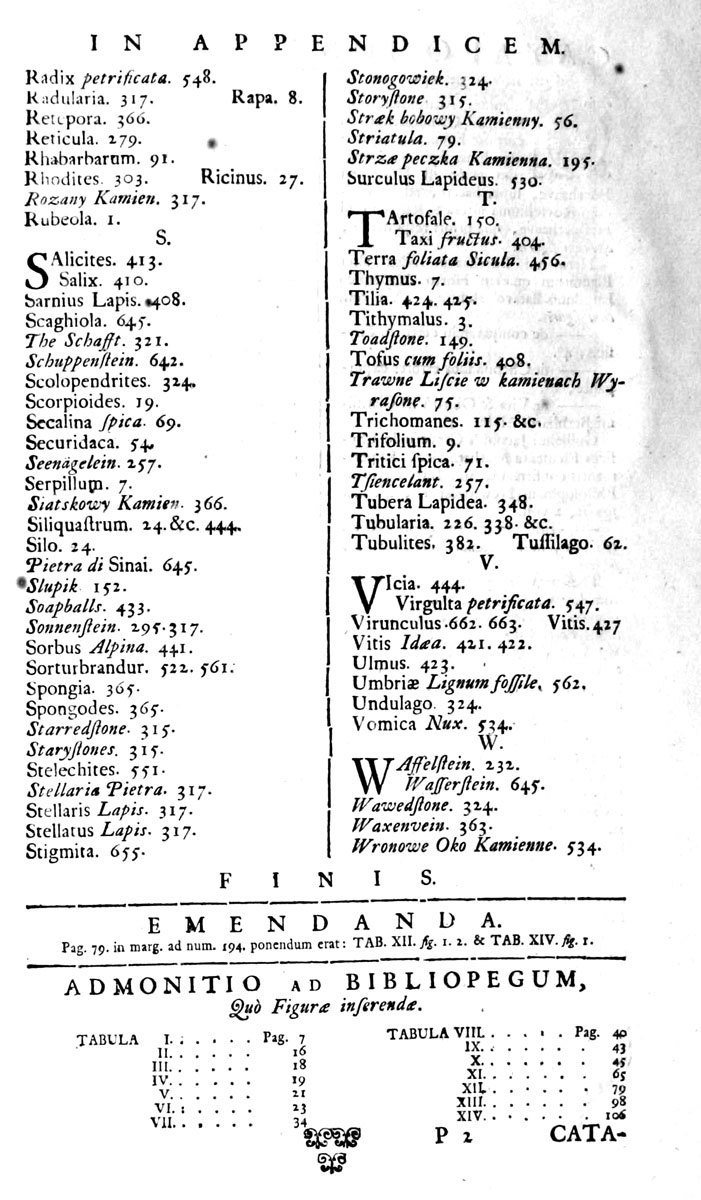 IN APPENDICEM.
Radix petrificata. 548.
Radularia. 317. Rapa. 8.
Retepora. 366.
Reticula. 279.
Rhabarbarum. 91.
Rhodites. 303. Ricinus. 27.
Rozany Kamien. 317.
Rubeola. 1.
S.
SAlicites. 413.
Salix. 410.
Sarnius Lapis. 408.
Scaghiola. 645.
The Schafft. 321.
Schuppenſtein. 642.
Scolopendrites. 324.
Scorpioides. 19.
Secalina ſpica. 69.
Securidaca. 54.
Seenägelein. 257.
Serpillum. 7.
Siatskowy Kamien. 366.
Siliquaſtrum. 24. &c. 444.
Silo. 24.
Pietra di Sinai. 645.
Slupik 152.
Soapballs. 433.
Sonnenſtein. 295. 317.
Sorbus Alpina. 441.
Sorturbrandur. 522. 561.
Spongia. 365.
Spongodes. 365.
Starredſtone. 315.
Staryſtones. 315.
Stelechites. 551.
Stellaria Pietra. 317.
Stellaris Lapis. 317.
Stellatus Lapis. 317.
Stigmita. 655.
Stonogowiek. 324.
Storyſtone 315.
Stræk bobowy Kamienny. 56.
Striatula. 79.
Strzæ peczka Kamienna. 195.
Surculus Lapideus. 530.
T.
TArtofale. 150.
Taxi fructus. 404.
Terra foliata Sicula. 456.
Thymus. 7.
Tilia. 424. 425.
Tithymalus. 3.
Toadſtone. 149.
Tofus cum foliis. 408.
Trawne Liſcie w kamienach Wy-
raſone. 75.
Trichomanes. 115. &c.
Trifolium. 9.
Tritici ſpica. 71.
Tſiencelant. 257.
Tubera Lapidea. 348.
Tubularia. 226. 338. &c.
Tubulites. 382. Tuſſilago. 62.
V.
VIcia. 444.
Virgulta petrificata. 547.
Virunculus. 662. 663. Vitis. 427
Vitis Idæa. 421. 422.
Ulmus. 423.
Umbriæ Lignum foſſile. 562.
Undulago. 324.
Vomica Nux. 534.
W.
WAffelſtein. 232.
Waſſerſtein. 645.
Wawedſtone. 324.
Waxenvein. 363.
Wronowe Oko Kamienne. 534.
FINIS.
EMENDANDA.
Pag. 79. in marg. ad num. 194. ponendum erat: TAB. XII. fig. 1. 2. & TAB. XIV. fig. 1.
ADMONITIO AD BIBLIOPEGUM,
Quò Figuræ inſerendæ.
TABULA I. . . . . . Pag. 7
II. . . . . . 16
III. . . . . . 18
IV. . . . . . 19
V. . . . . . 21
VI. : . . . . 23
VII. . . . . . 34
TABULA VIII. . . . . . Pag. 40
IX. . . . . . . 43
X. . . . . . . 45
XI. . . . . . . 65
XII. . . . . . . 79
XIII. . . . . . . 98
XIV. . . . . . . 106
P 2 CATA-